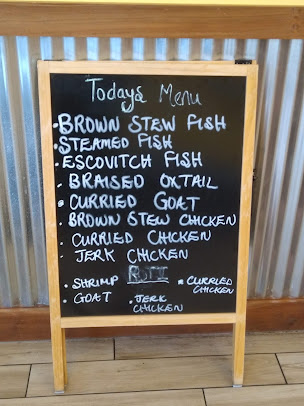 Todays Menu
• BROWN STEW FISH
• STEAMED FISH
• ESCOVITCH FISH
• BRAISED OXTAIL
• CURRIED GOAT
• BROWN STEW CHICKEN
• CURRIED CHICKEN
• JERK CHICKEN
ROTI
• SHRIMP
• CURRIED CHICKEN
• GOAT
• JERK CHICKEN